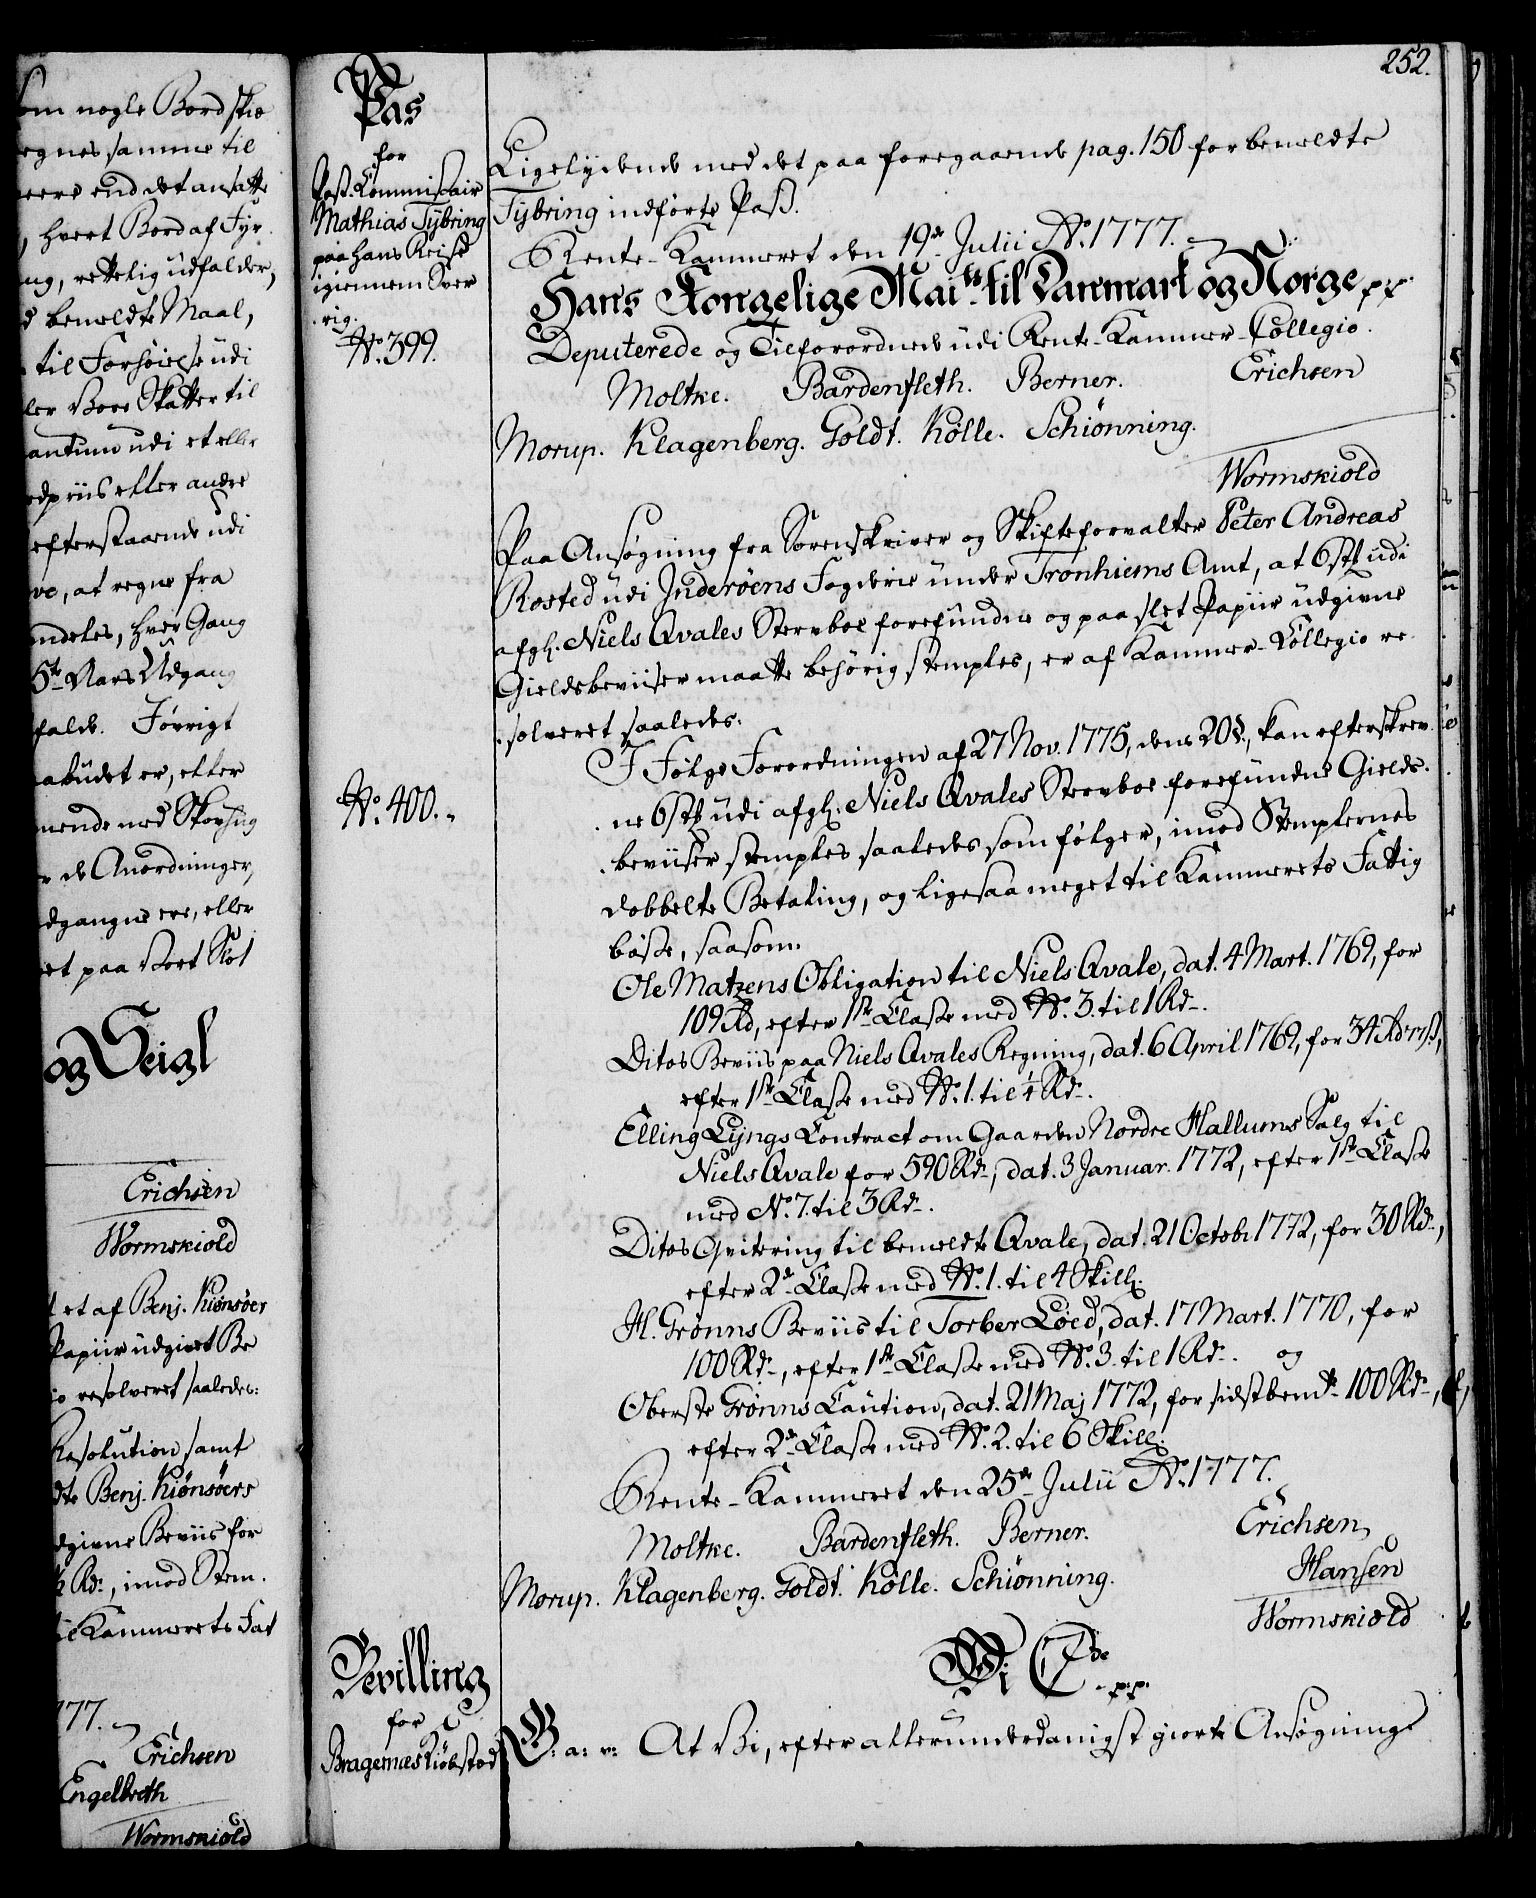 om nogle Bord skie
egnes samme til
meere end det ansatte
, hvert Bord af Fyr
ng, rettelig udfalder,
d bemeldte Maal,
til Forhøielse udi
ler Vore Skatter til
antum udi et eller
edpriis eller andre
efterstaaende udi
ve, at regne fra
ndeles, hver Gang
5te Aars Udgang
falde. Jøvrigt
abudet er, eller
mende med Skovhug
r de Anordninger,
dgangne ere, eller
et paa Vort Slot
og Seigl
Erichsen
Wormskiold
et af Benj. Kiønsøer
Papiir udgivet Be
io resolveret saaledes:
Resolution samt
dte Benj. Kiønsøers
dgivne Beviis for
Rdr, imod Stem.
til Kammerets Fat
777.
Erichsen
Engelbreth
Wormskiold
252.
Pas
for
Mathias Tÿbring
paa hans Reise
igiennem Sver
rig.
No. 399.
Ligelydende med det paa foregaaende pag. 150 for bemeldte
Tÿbring indførte Pass.
Rente-Kammeret den 19de Julii Ao. 1777.
Hans Kongelige Maits. til Danmark og Norge pp.
Deputerede og Tilforordnede udi Rente-Kammer-Collegio.
Moltke. Bardenfleth. Berner. Erichsen
Morup. Klagenberg. Goldt. Kölle. Schiönning.
Wormskiold
Paa Ansøgning fra Sorenskriver og Skifteforvalter Peter Andreas
Rosted udi Inderöens Fogderie under Tronhiems Amt, at 6 stk udi
afgl. Niels Qvales Sterboe forefundne og paa slet Papiir udgivne
Gieldsbeviiser maatte behörig stemples, er af Kammer-Collegio re
solveret saaledes:
No. 400.
I Følge Forordningen af 27 Nov. 1775, dens 20 §., kan efterskrev
ne 6 stk udi afgl. Niels Qvales Sterboe forefundne Gields
beviiser stemples saaledes som følger, imod Stemplernes
dobbelte Betaling, og ligesaa meget til Kammerets Fattig
bøsse, saasom:
Ole Matzens Obligation til Niels Qvale, dat. 4 Mart. 1769, for
109 Rd, efter 1ste Classe med No. 3. til 1 Rd.
Ditos Beviis paa Niels Qvales Regning, dat. 6 April 1769, for 34 Rd
efter 1ste Classe med No. 1. til ¼ Rd.
Elling Lÿngs Contract om Gaarden Nordre Hallums Salg til
Niels Qvale for 590 Rd, dat. 3 Januar. 1772, efter 1ste Classe
med No. 7. til 3 Rd.
Ditos Qvitering til bemeldte Qvale, dat. 21 Octobr 1772, for 30 Rd,
efter 2den Classe med No. 1. til 4 Skill.
H. Grønns Beviis til Torber Löed, dat. 17 Mart. 1770, for
100 Rd, efter 1ste Classe med No. 3. til 1 Rd. og
Oberste Grønns Caution, dat. 21 Maj 1772, for sidstbemte 100 Rd,
efter 2den Classe med No. 2. til 6 Skill.
Rente-Kammeret den 25de Julii Ao. 1777.
Moltke. Bardenfleth. Berner. Erichsen
Morup. Klagenberg. Goldt. Kölle. Schiönning. Hansen
Wormskiold
Bevilling
for
Bragernæs Kiöbsted
Wi C 7de p.p.
G: a: v: At Vi, efter allerunderdanigst giorte Ansøgning